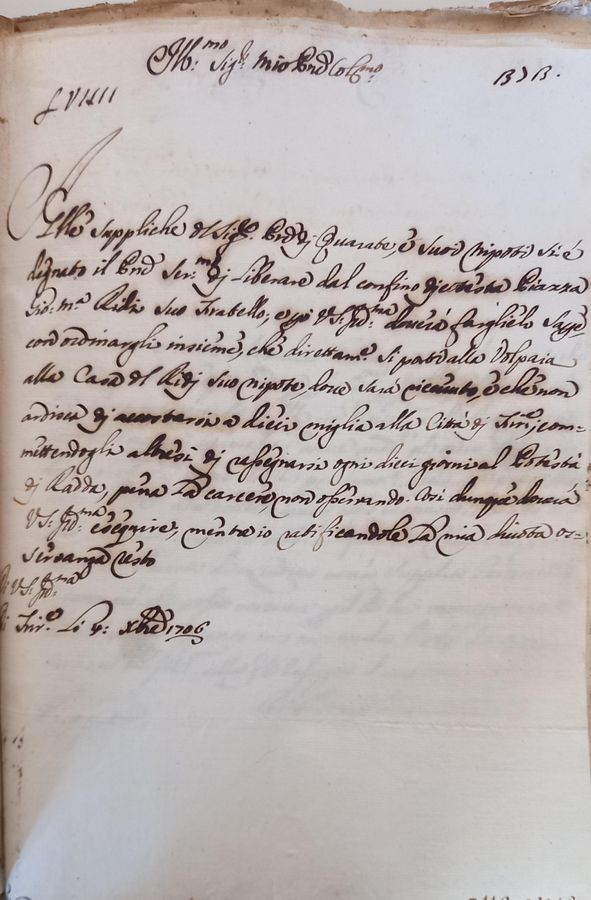 Ill:mo Sig:r mio Pnẽ Col:mo
LVIIII
Alle suppliche del Sig:r di Quarate, e suoi nipoti si è
degnato il Pnẽ Ser:mo di liberare dal confino di cotesta Piazza
Gio: M:a Ridi suo Fratello, e però V.S. Ill:ma dovrà farglielo sape
con ordinargli insieme, che direttam:e si porti alla Volpaia
alla Casa del Ridi suo nipote, dove sarà ricevuto, e che non
ardisca di accostarsi a dieci miglia alla Città di Fir:e, com=
mettendogli altresì di rassegnarsi ogni dieci giorni al Potestà
di Radda, pena la carcere, non osservando. Così dunque dovrà
V.S. Ill:ma eseguire, mentre io ratificandole la mia divota os=
servanza resto
Di V.S. Ill:ma
Di Fir:e Li xbre 1706